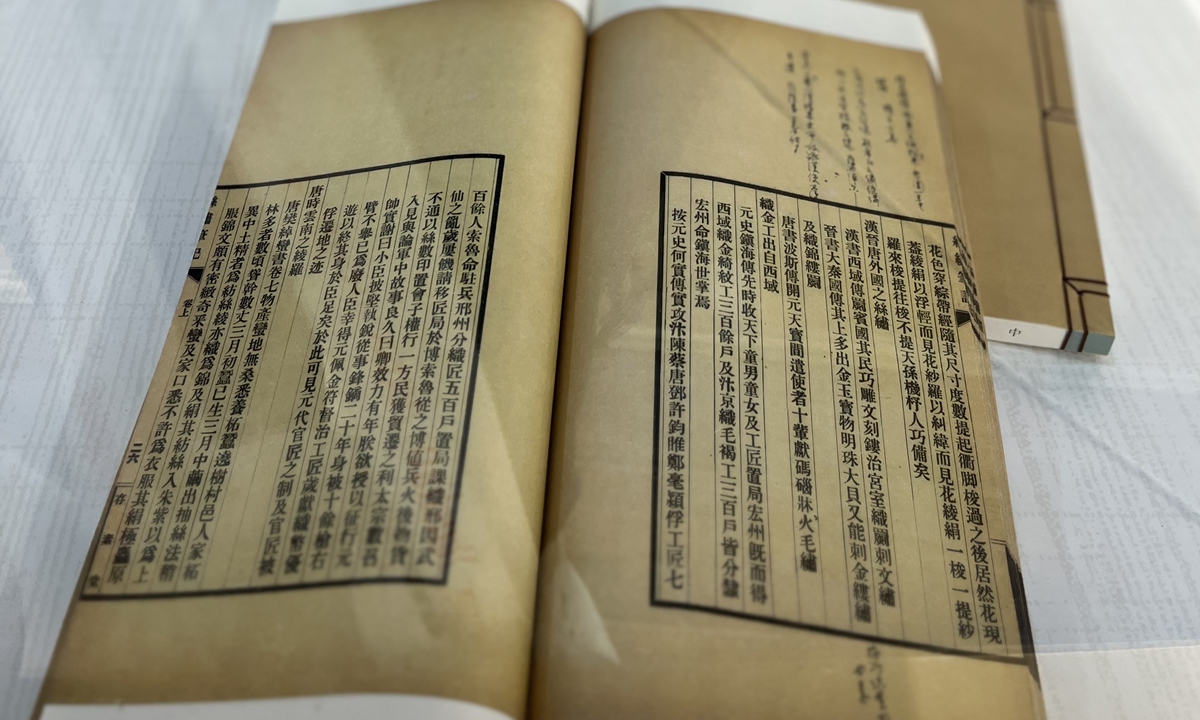 花色穿綜帶經隨其尺寸度數提起衢脚梭過之後居然花現
蓋綾絹以浮輕而見花紗羅以糾緯而見花綾絹一梭一提紗
羅來梭提往梭不提天孫機杼人巧備矣
漢晉唐外國之絲繡
漢書西域傳罽賓國其民巧雕文刻鏤治宮室織罽刺文繡
晉書大秦國傳其上多出金玉寶物明珠大貝又能刺金縷繡
及織錦縷罽
唐書波斯傳開元天寶間遣使者十輩獻碼碯牀火毛繡
織金工出自西域
元史鎭海傳先時收天下童男童女及工匠置局宏州旣而得
西域織金綺紋工三百餘戶及汴京織毛褐工三百戶皆分隸
宏州命鎭海世掌焉
按元史何實傳實攻汴陳蔡唐鄧許鈞睢鄭亳潁俘工匠七
百餘人索魯命駐兵邢州分織匠五百戶置局課織邢四武
仙之亂歲屢饑請移匠局於博索魯從之博値兵火後物貨
不通以絲數印置會子權行一方民獲貿遷之利太宗數召
入見與論軍中故事良久曰卿效力有年朕欲授以征行元
帥實謝曰小臣披堅執銳從事鋒鏑二十年身被十餘槍右
臂不舉已爲廢人臣幸得元佩金符督治工匠歲獻織幣優
遊以終其身於臣足矣於此可見元代官匠之制及官匠被
俘遷地之迹
唐時雲南之綾羅
唐樊綽蠻書卷七物產蠻地無桑悉養柘蠶遶樹村邑人家柘
林多者數頃聳幹數丈三月初蠶已生三月中繭出抽絲法稍
異中土精者爲紡絲綾亦織爲錦及絹其紡絲入朱紫以爲上
服錦文頗有密緻奇采蠻及家口悉不許爲衣服其絹極麤原
絲繡筆記
卷上
二六
存素堂
中